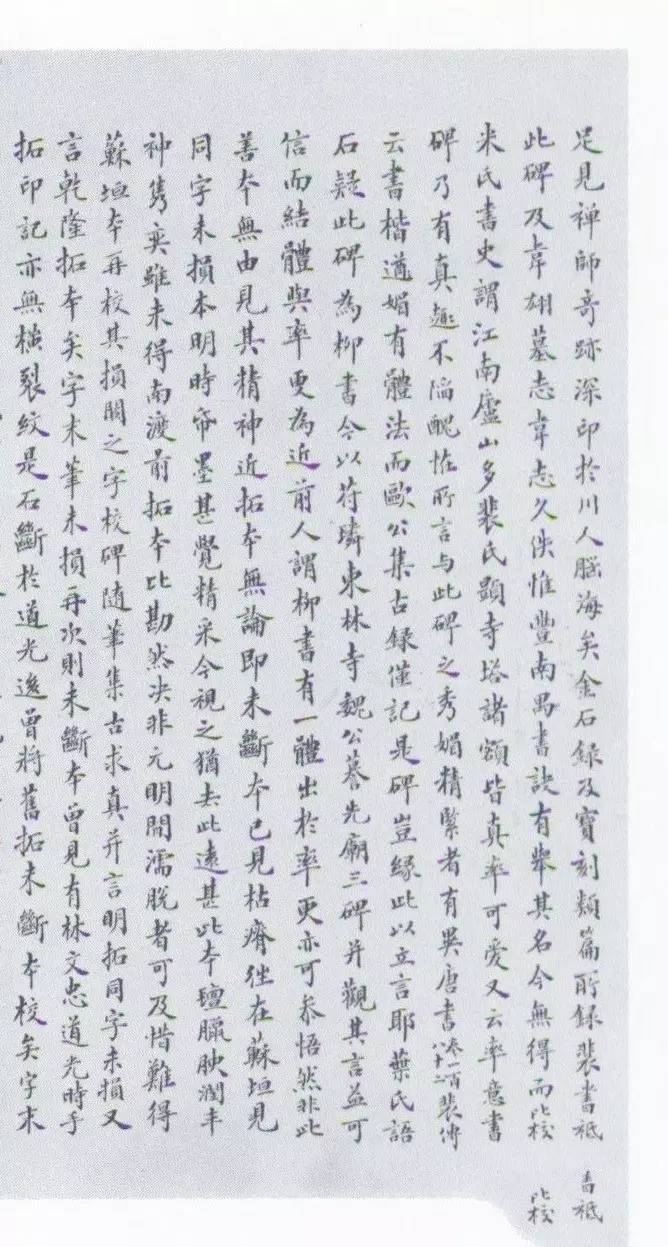 足見禅師奇跡深印於川人腦海矣金石錄及寶刻類篇所錄裴書祗
此碑及韋翃墓志韋志久佚惟豐南禺書訣有舉其名今無得而比校
米氏書史謂江南廬山多裴氏題寺塔諸額皆真率可愛又云率意書
碑乃有真趣不陷醜怪所言与此碑之秀媚精緊者有異唐書卷一百八十二裴傳
云書楷遒媚有體法而歐公集古錄僅記是碑豈緣此以立言耶葉氏語
石疑此碑為柳書今以苻璘東林寺魏公謩先廟三碑并觀其言益可
信而結體與率更為近前人謂柳書有一體出於率更亦可参悟然非此
善本無由見其精神近拓本無論即未斷本已見枯瘠徃在蘇垣見
同字未損本明時帝墨甚覺精采今視之猶去此遠甚此本壇臘腴潤丰
神雋爽雖未得南渡前拓本比勘然决非元明間濡脫者可及惜難得
蘇垣本再校其損闕之字校碑随筆集古求真并言明拓同字未損又
言乾隆拓本矣字末筆未損再次則未斷本曾見有林文忠道光時手
拓印記亦無橫裂紋是石斷於道光逡曾將舊拓未斷本校矣字末
書祗
比校